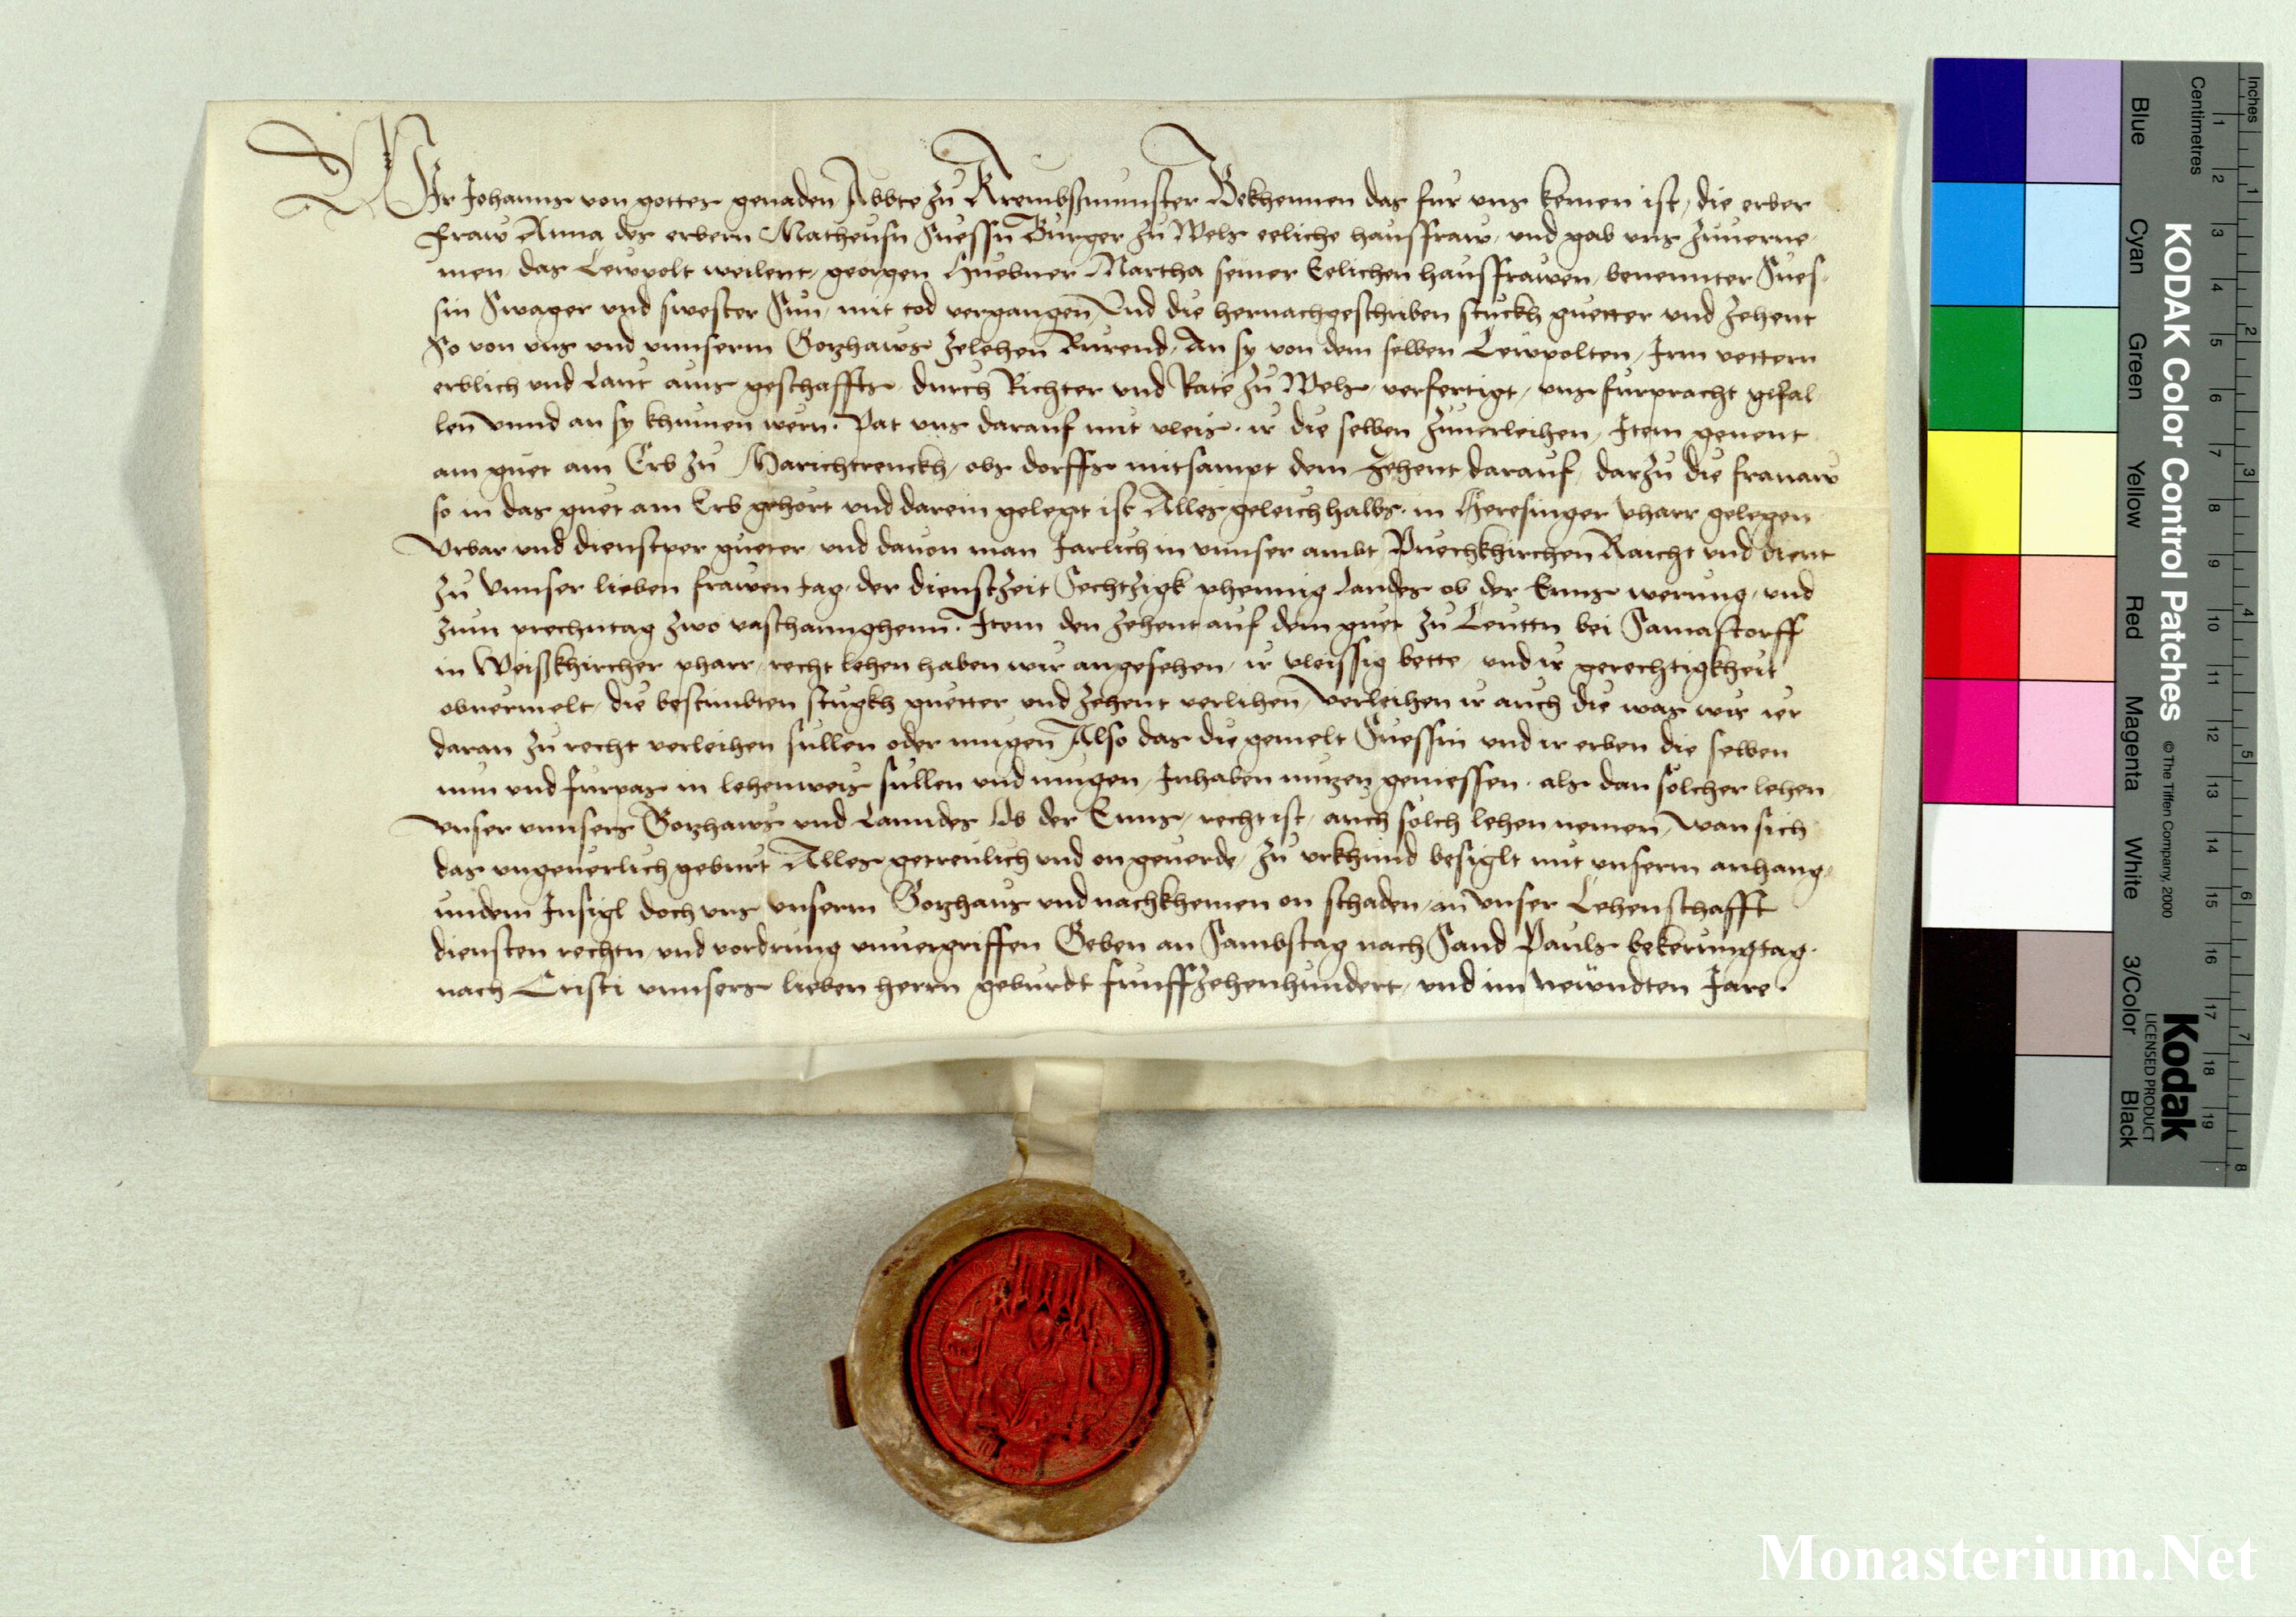 Wir Johanns von gottes genaden Abbte zu Krembsmunster Bekhennen das fur uns komen ist, die erber
fraw Anna des erbern Matheusn Suessn Burger zu Wels eeliche hausfraw, und gab uns zuverne-
men, das Lewpolt weilent, georgen Huebmer Martha seiner Eelichen hausfrawen, benennter Sues-
sin Swager und swester Sun, mit tod vergangen, Und die hernachgeschriben stuckh guetter und zehent
So von uns und unnserm Gotzhaws zelehen Rurend, An sy von dem selben Lewpolten, Irm vettern
erblich und Laut ains geschaffts, durch Richter und Rate zu Wels, verfertigt, uns furpracht gefal
len unnd an sy khumen wern. Pat uns darauf mit vleis. ir die selben zuuerleihen, Item genent
am guet am Erb zu Marichtrenckh, obs dorffs mitsampt dem zehent darauf, darzu die
so in das guet am Erb gehort und darein gelegt ist Alles geleich halbs. in pharr gelegen
Urbar und dienstper gueter, und dauon man Jarlich in unnser ambt Puechkhirchen Raicht und dient
zu Unnser lieben frawen tag, der dienstzeit Sechtzigk phennig Landes ob der Enns werung, und
zum prechntag zwo vaschannghenn. Item den zehent auf dem guet zu Leuttn bei
in Weißkhircher pharr, recht lehen haben wir angesehen, ir vleissig bette, und ir gerechtigkheit
obuermelt, die bestimbten stugkh guetter und zehent verlihen, Verleihen ir auch die was wir ier
daran zu recht verleihen sullen oder mugen Also das die gemelt Suessin und ir erben die selben
nun und furpas in lehenweis sullen und mugen, Inhaben nutzen geniessen. als dan solcher lehen
unser unnsers Gotzhaws und Lanndes Ob der Enns, recht ist, auch solch lehen nemen, wan sich
das ungeuerlich geburt Alles getreulich und on geuerde, zu urkhund besiglt mit unserm anhang-
undem Insigl doch uns unserm Gotzhaus und nachkhemen on schaden, an unser Lehenschafft
diensten rechtn, und vordrung unuergriffen Geben an Sambstag nach Sand Pauls bekerungtag.
nach Cristi unnsers lieben herrn geburdt funffzehenhundert, und im newndten Jare.
KODAK Color Control Patches © The Tiffen Company, 2000
Kodak
LICENSED PRODUCT
Inches 1 2 3 4 5 6 7 8
Centimetres 1 2 3 4 5 6 7 8 9 10 11 12 13 14 15 16 17 18 19
Blue Cyan Green Yellow Red Magenta White 3/Color Black
Monasterium.Net